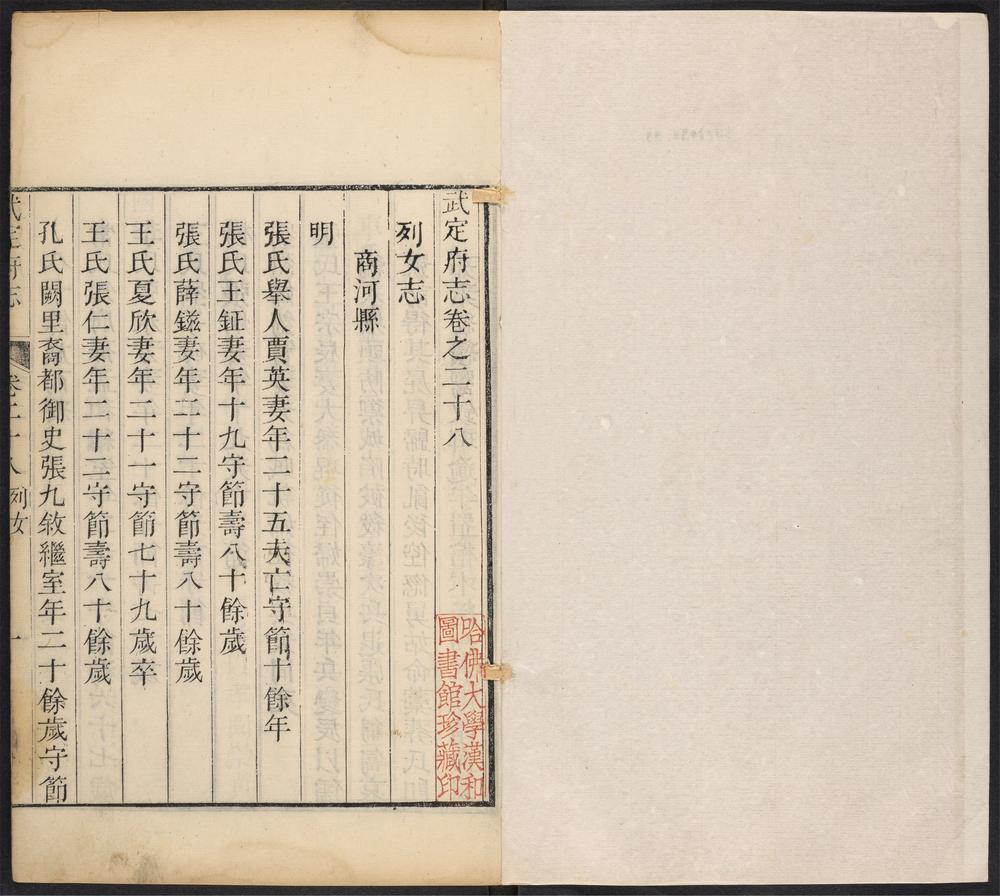 武定府志卷之二十八
列女志
商河縣
明
張氏舉人賈英妻年二十五夫亡守節十餘年
張氏王鉦妻年十九守節壽八十餘歲
張氏薛鎡妻年二十二守節壽八十餘歲
王氏夏欣妻年二十一守節七十九歲卒
王氏張仁妻年二十二守節壽八十餘歲
孔氏闕里裔都御史張九敘繼室年二十餘歲守節
武定府志 卷二十八 列女 一
哈佛大學漢和
圖書館珍藏印